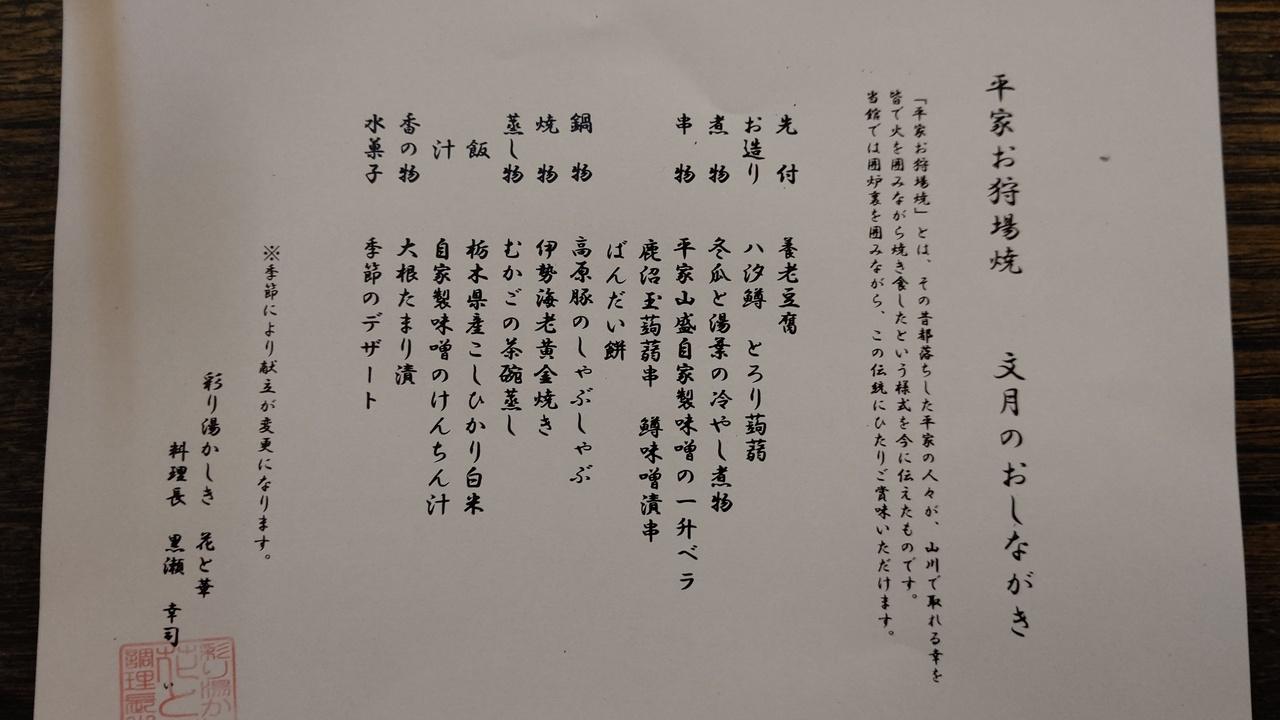 平家お狩場焼　文月のおしながき
「平家お狩場焼」とは、その昔都落ちした平家の人々が、山川で取れる幸を
皆で火を囲みながら焼き食したという様式を今に伝えたものです。
当館では囲炉裏を囲みながら、この伝統にひたりご賞味いただけます。
先付　養老豆腐
お造り　八汐鱒　とろり蒟蒻
煮物　冬瓜と湯葉の冷やし煮物
串物　平家山盛自家製味噌の一升ベラ
鹿沼玉蒟蒻串　鱒味噌漬串
ばんだい餅
鍋物　高原豚のしゃぶしゃぶ
焼物　伊勢海老黄金焼き
蒸し物　むかごの茶碗蒸し
飯　栃木県産こしひかり白米
汁　自家製味噌のけんちん汁
香の物　大根たまり漬
水菓子　季節のデザート
※季節により献立が変更になります。
彩り湯かしき　花と華
料理長　黒瀬　幸司
彩り湯か
花と
調理長